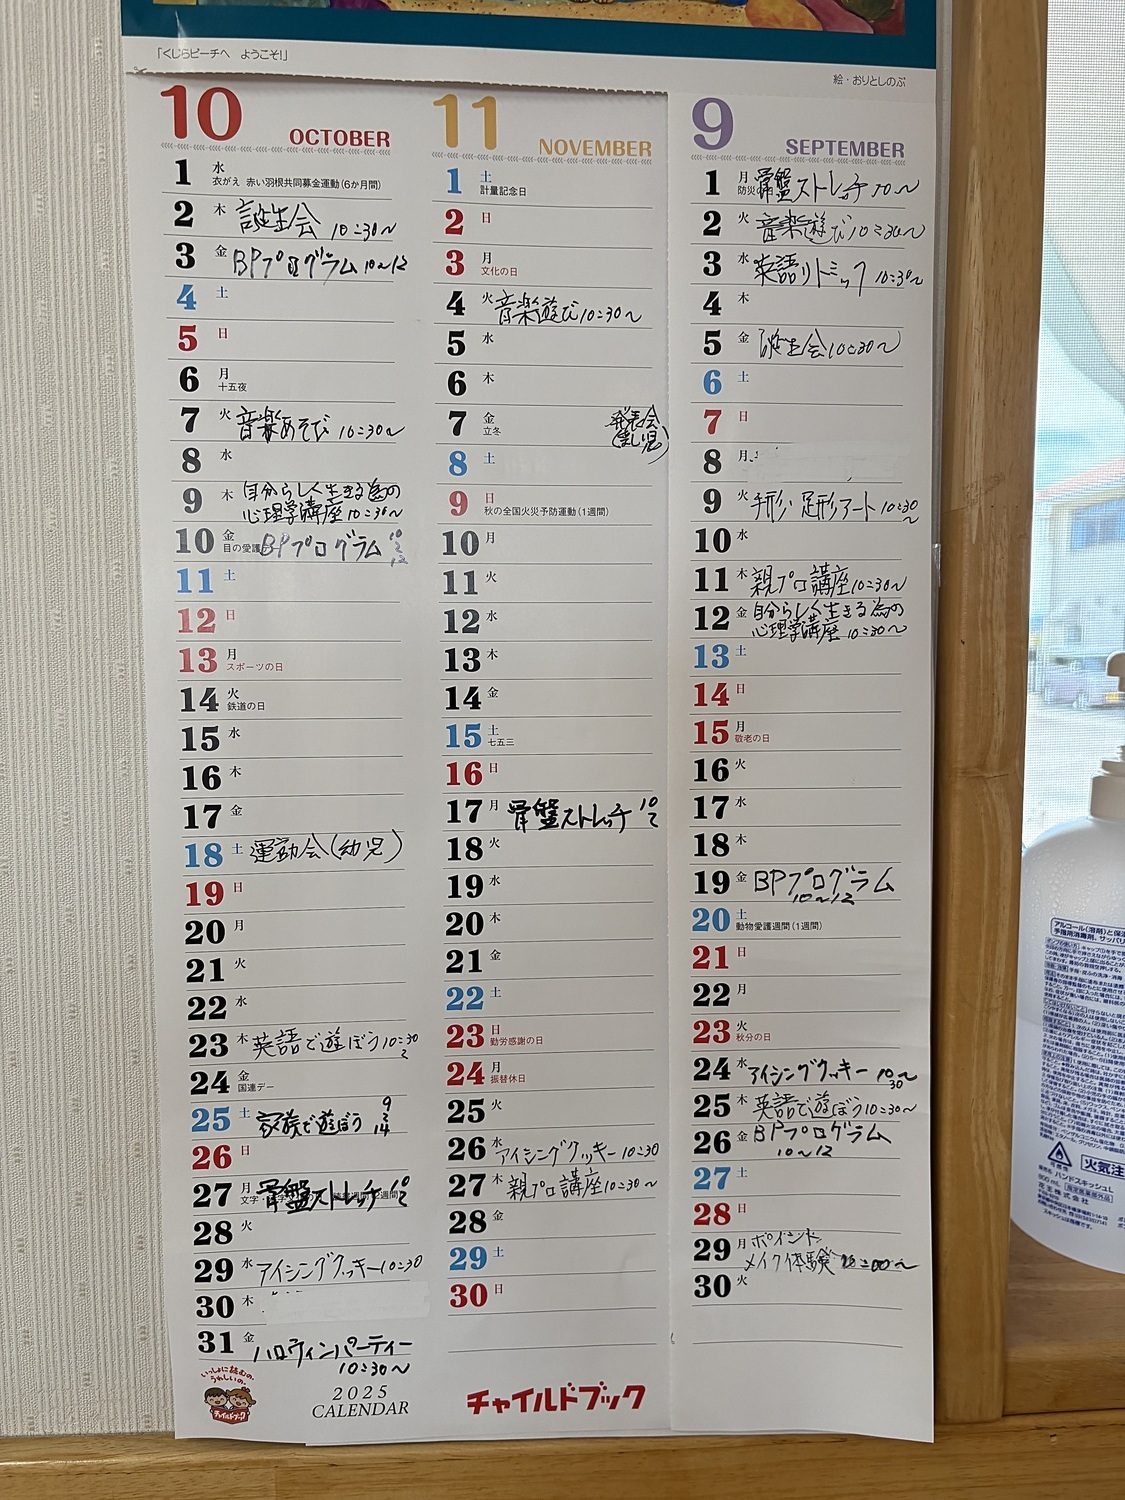 「くじらビーチへ ようこそ!」
絵・おりとしのぶ
10 OCTOBER
1 水 衣がえ 赤い羽根共同募金運動(6か月間)
2 木 誕生会 10:30〜
3 金 BPプログラム 10〜12
4 土
5 日
6 月 十五夜
7 火 音楽あそび 10:30〜
8 水
9 木 自分らしく生きる為の
心理学講座 10:30〜
10 金 目の愛護 BPプログラム 10〜12
11 土
12 日
13 月 スポーツの日
14 火 鉄道の日
15 水
16 木
17 金
18 土 運動会(幼児)
19 日
20 月
21 火
22 水
23 木 英語で遊ぼう 10:30〜
24 金 国連デー
25 土 家族で遊ぼう 9〜14
26 日
27 月 文字・ 骨盤ストレッチ 10〜
28 火
29 水 アイシングクッキー 10:30
30 木
31 金 ハロウィンパーティー
10:30〜
いっしょに読むの、
うれしいの。
チャイルドブック
2025
CALENDAR
11 NOVEMBER
1 土 計量記念日
2 日
3 月 文化の日
4 火 音楽遊び 10:30〜
5 水
6 木
7 金 立冬 発表会
(乳児)
8 土
9 日 秋の全国火災予防運動(1週間)
10 月
11 火
12 水
13 木
14 金
15 土 七五三
16 日
17 月 骨盤ストレッチ 10〜
18 火
19 水
20 木
21 金
22 土
23 日 勤労感謝の日
24 月 振替休日
25 火
26 水 アイシングクッキー 10:30
27 木 親プロ講座 10:30〜
28 金
29 土
30 日
チャイルドブック
9 SEPTEMBER
1 月 防災 骨盤ストレッチ 10〜
2 火 音楽遊び 10:30〜
3 水 英語リトミック 10:30〜
4 木
5 金 誕生会 10:30〜
6 土
7 日
8 月
9 火 手形・足形アート 10:30〜
10 水
11 木 親プロ講座 10:30〜
12 金 自分らしく生きる為の
心理学講座 10:30〜
13 土
14 日
15 月 敬老の日
16 火
17 水
18 木
19 金 BPプログラム
10〜12
20 土 動物愛護週間(1週間)
21 日
22 月
23 火 秋分の日
24 水 アイシングクッキー 10:30〜
25 木 英語で遊ぼう 10:30〜
26 金 BPプログラム
10〜12
27 土
28 日
29 月 ポイント
メイク体験 10:00〜
30 火
火気注
ハンドスキッシュ